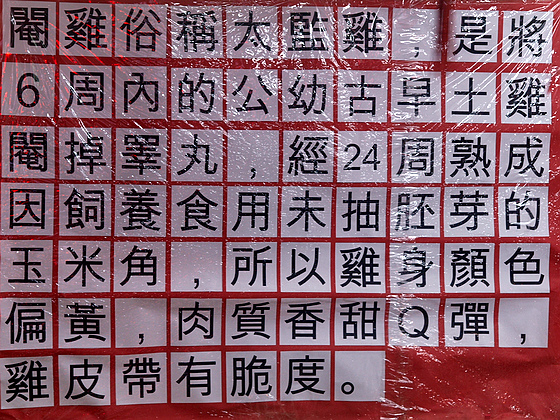 閹雞俗稱太監雞，是將
6周內的公幼古早土雞
閹掉睪丸，經24周熟成
因飼養食用未抽胚芽的
玉米角，所以雞身顏色
偏黃，肉質香甜Q彈，
雞皮帶有脆度。